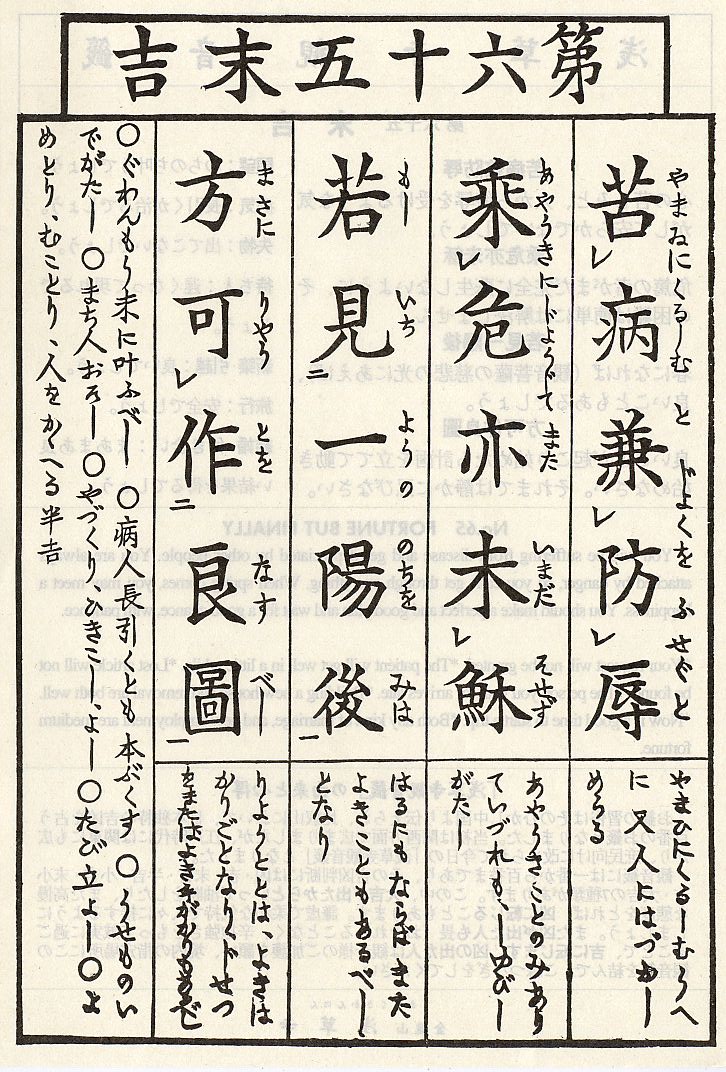 第六十五末吉
やまゐにくるしむ と ぢよくを ふせぐと
苦レ病兼レ防レ辱
やまひにくるしむうへ
に又人にはづかし
めらるる
あやうきにじようじてまた いまだ そせず
乘レ危亦未レ穌
あやうきことのみあり
ていづれも、
がたし
もし いち ようの のちを みは
若見二一陽後一
はるにもならばまた
よきこともあるべし
となり
まさに りやう とを なす べし
方可レ作二良圖一
りようとは、よきは
かりごとなりじせつ
をまたばよき事がかりもすべし
〇ぐわんもう末に叶ふべし〇病人長引くとも本ぶくす〇うせものい
でがたし〇まち人おそし〇やづくりひきこしよし〇たび立よし〇よ
めとり、むことり、人をかゝへる半吉